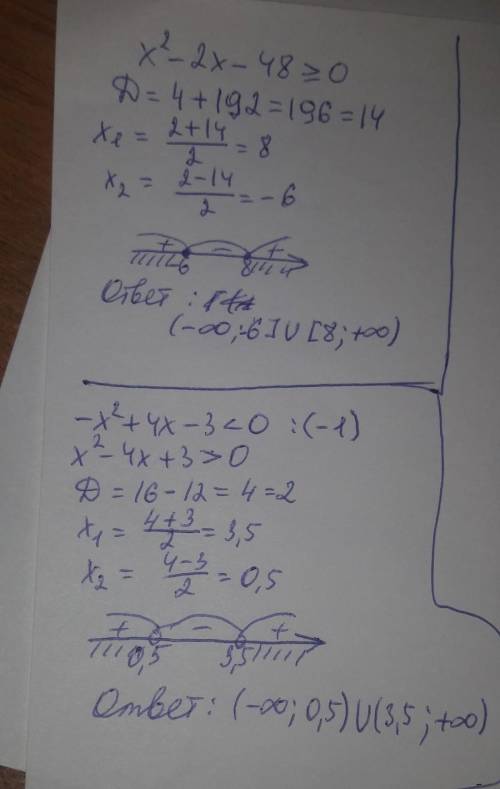 x² - 2x - 48 ≥ 0
Д = 4 + 192 = 196 = 14
x₁ = (2+14)/2 = 8
x₂ = (2-14)/2 = -6
+ - +
-6 8
Ответ :
(-∞; -6] ∪ [8; +∞)
-x² + 4x - 3 < 0 :(-1)
x² - 4x + 3 > 0
Д = 16 - 12 = 4 = 2
x₁ = (4+3)/2 = 3,5
x₂ = (4-3)/2 = 0,5
+ - +
0,5 3,5
Ответ: (-∞; 0,5) ∪ (3,5; +∞)